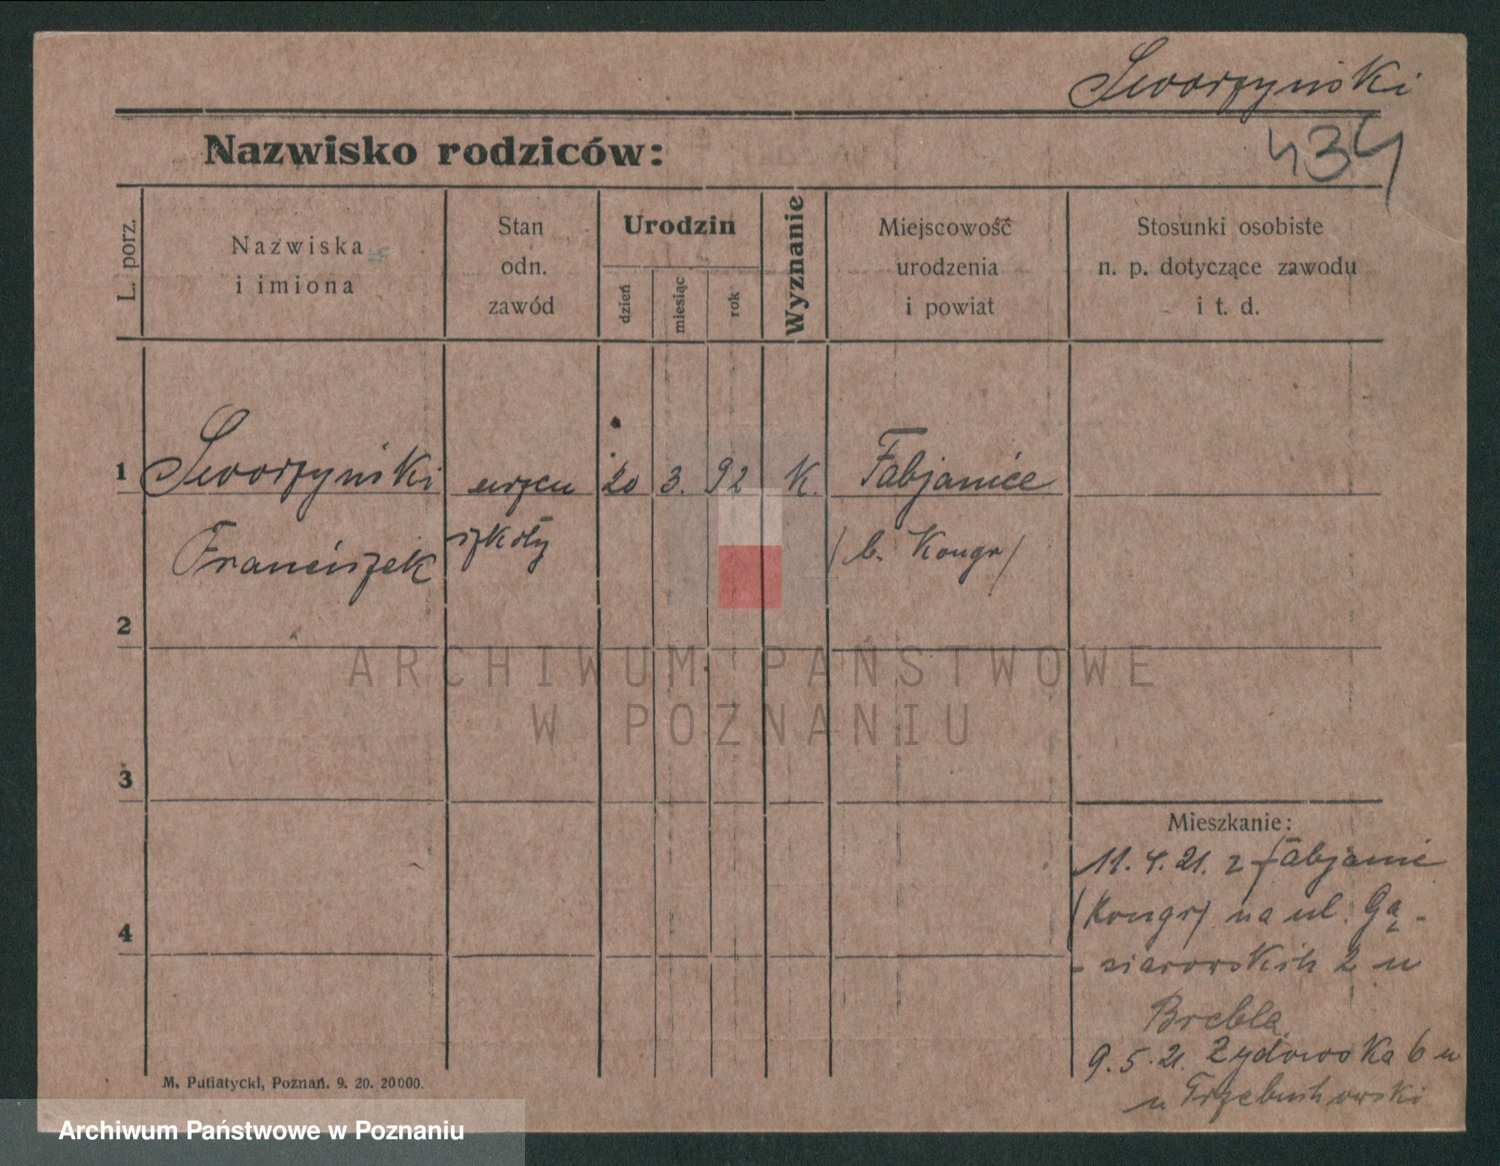 Sworzyński
434
Nazwisko rodziców:
L. porz.
Nazwiska
i imiona
Stan
odn.
zawód
Urodzin
dzień
miesiąc
rok
Wyznanie
Miejscowość
urodzenia
i powiat
Stosunki osobiste
n. p. dotyczące zawodu
i t. d.
1 Sworzyński 20 3. 92 K. Fabjanice
Franciszek szkoły (b. Kongr)
2
3
4
Mieszkanie:
11. 4. 21. z Fabjanic
(Kongr) na ul. Gą-
siorowskich 2 u
Brebla
9. 5. 21. Żydowska 6 u
u Trzebuchowski
M. Putiatycki, Poznań. 9. 20. 20000.
ARCHIWUM PAŃSTWOWE
W POZNANIU
Archiwum Państwowe w Poznaniu